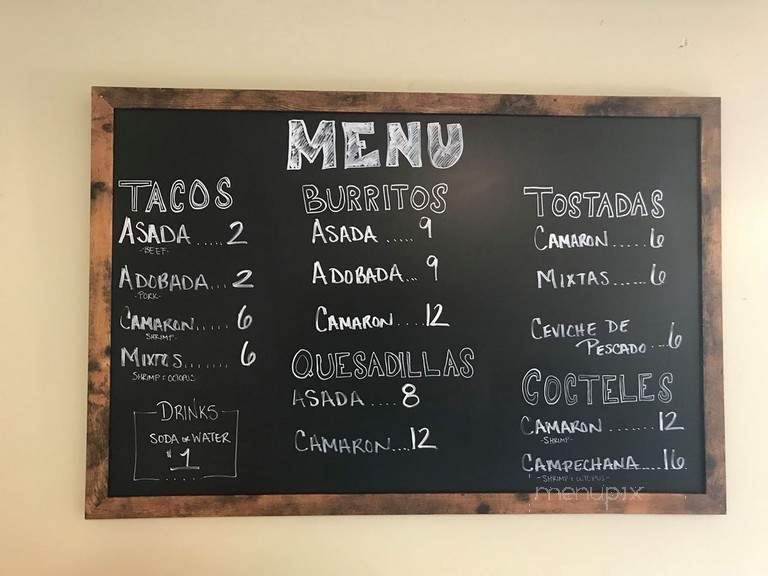 MENU
TACOS
ASADA.....2
-BEEF-
ADOBADA...2
-PORK-
CAMARON.....6
SHRIMP-
MIXTAS.......6
SHRIMP & OCTOPUS
DRINKS
SODA OR WATER
$1
BURRITOS
ASADA.....9
ADOBADA...9
CAMARON....12
QUESADILLAS
ASADA....8
CAMARON...12
TOSTADAS
CAMARON.....6
MIXTAS......6
CEVICHE DE
PESCADO...6
COCTELES
CAMARON.......12
-SHRIMP-
CAMPECHANA....16
-SHRIMP & OCTOPUS-
menupix